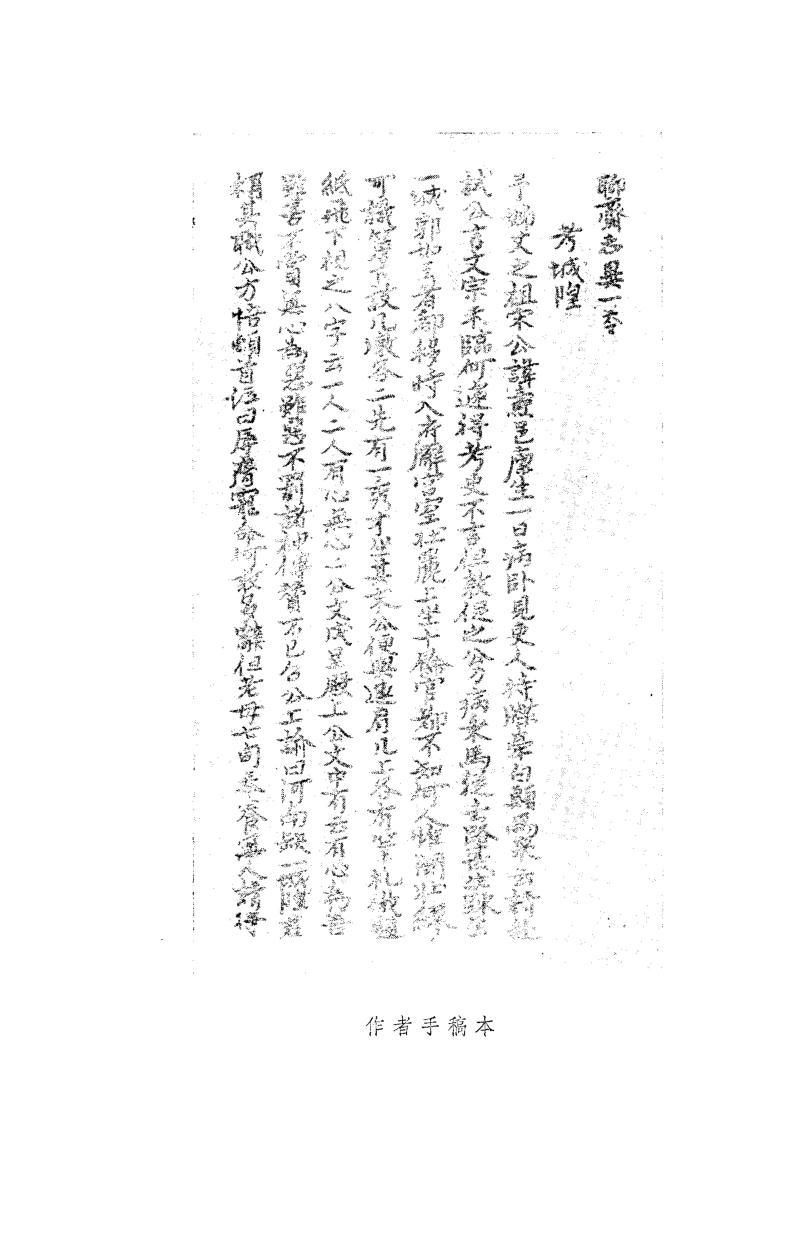 聊齋志異一卷
考城隍
予姊丈之祖宋公諱燾邑廩生一日病卧見吏人持牒牽白顛馬來云請赴
試公言文宗未臨何遽得考吏不言但敦促之公力病乘馬從去路甚生疎至
一城郭如王者都移時入府廨宮室壯麗上坐十餘官都不知何人惟關壯繆
可識簷下設几墩各二先有一秀才坐其末公便與連肩几上各有筆札俄題
紙飛下視之八字云一人二人有心無心二公文成呈殿上公文中有云有心為善
雖善不賞無心為惡雖惡不罰諸神傳贊不已召公上諭曰河南缺一城隍君
稱其職公方悟頓首泣曰辱膺寵命何敢多辭但老母七旬奉養無人請得
作者手稿本